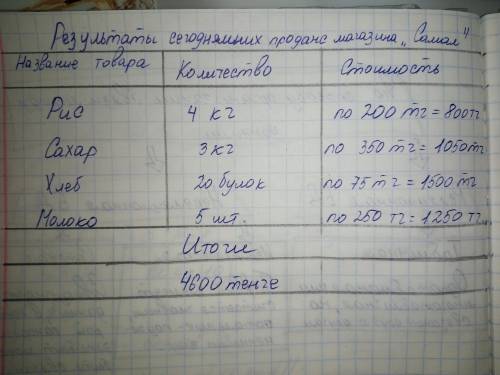 Результаты сегодняшних продаж магазина „Самал"
Название товара Количество Стоимость
Рис 4 кг по 200 тг = 800тг
Сахар 3 кг по 350 тг = 1050тг
Хлеб 20 булок по 75 тг = 1500 тг
Молоко 5 шт. по 250 тг = 1250 тг.
Итоги
4600 тенге